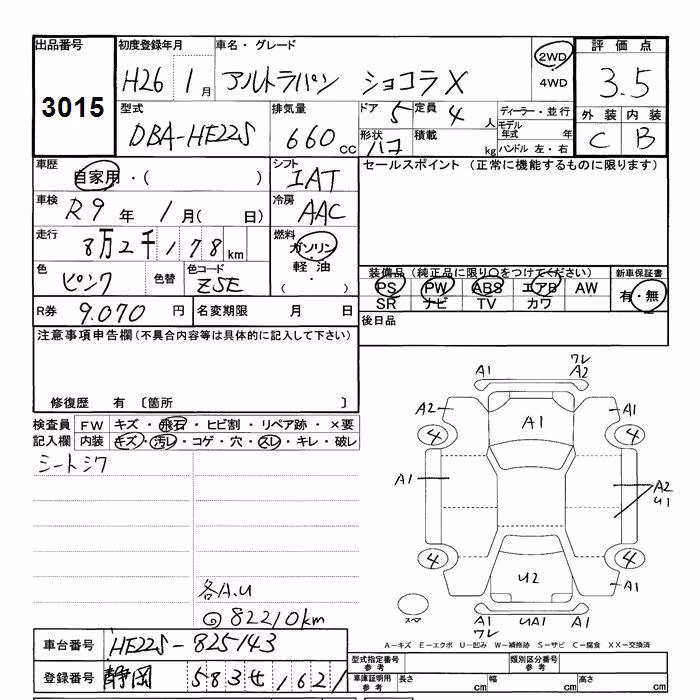 出品番号 初度登録年月 車名・グレード 2WD ・ 4WD 評価点
3015 H26 1月 アルトラパン ショコラX 3.5
型式 排気量 ドア 5 定員 4 人 ディーラー・並行 外装 内装
DBA-HE22S 660 cc 形状 ハコ 積載 kg モデル年式 年 ハンドル 左・右 C B
車歴 自家用・( ) シフト IAT セールスポイント (正常に機能するものに限ります)
車検 R9年 1月( 日) 冷房 AAC
走行 8万2千178km 燃料 ガソリン ・ 軽油 ( ・ )
色 ピンク 色替 色コード ZSE
装備品 (純正品に限り○をつけてください) 新車保証書
PS PW ABS エアB AW 有・無
SR ナビ TV カワ
R券 9.070 円 名変期限 月 日 後日品
注意事項申告欄(不具合内容等は具体的に記入して下さい)
修復歴 有 〔箇所 〕
検査員記入欄 FW キズ・飛石・ヒビ割・リペア跡・×要
内装 キズ・汚レ・コゲ・穴・スレ・キレ・破レ
シートシワ
各A.U
@82210km
A1 ワレ A2
A2 A1 A1
4 4
A1 A2 U1
4 4
U2 A1
スペア A1 ワレ UA1 A1
A-キズ E-エクボ U-凹み W-補修跡 S-サビ C-腐食 XX-交換済
車台番号 HE22S-825143
型式指定番号 参考 類別区分番号 参考
登録番号 静岡 583 せ 1621
車庫証明用 参考 長さ cm 幅 cm 高さ cm